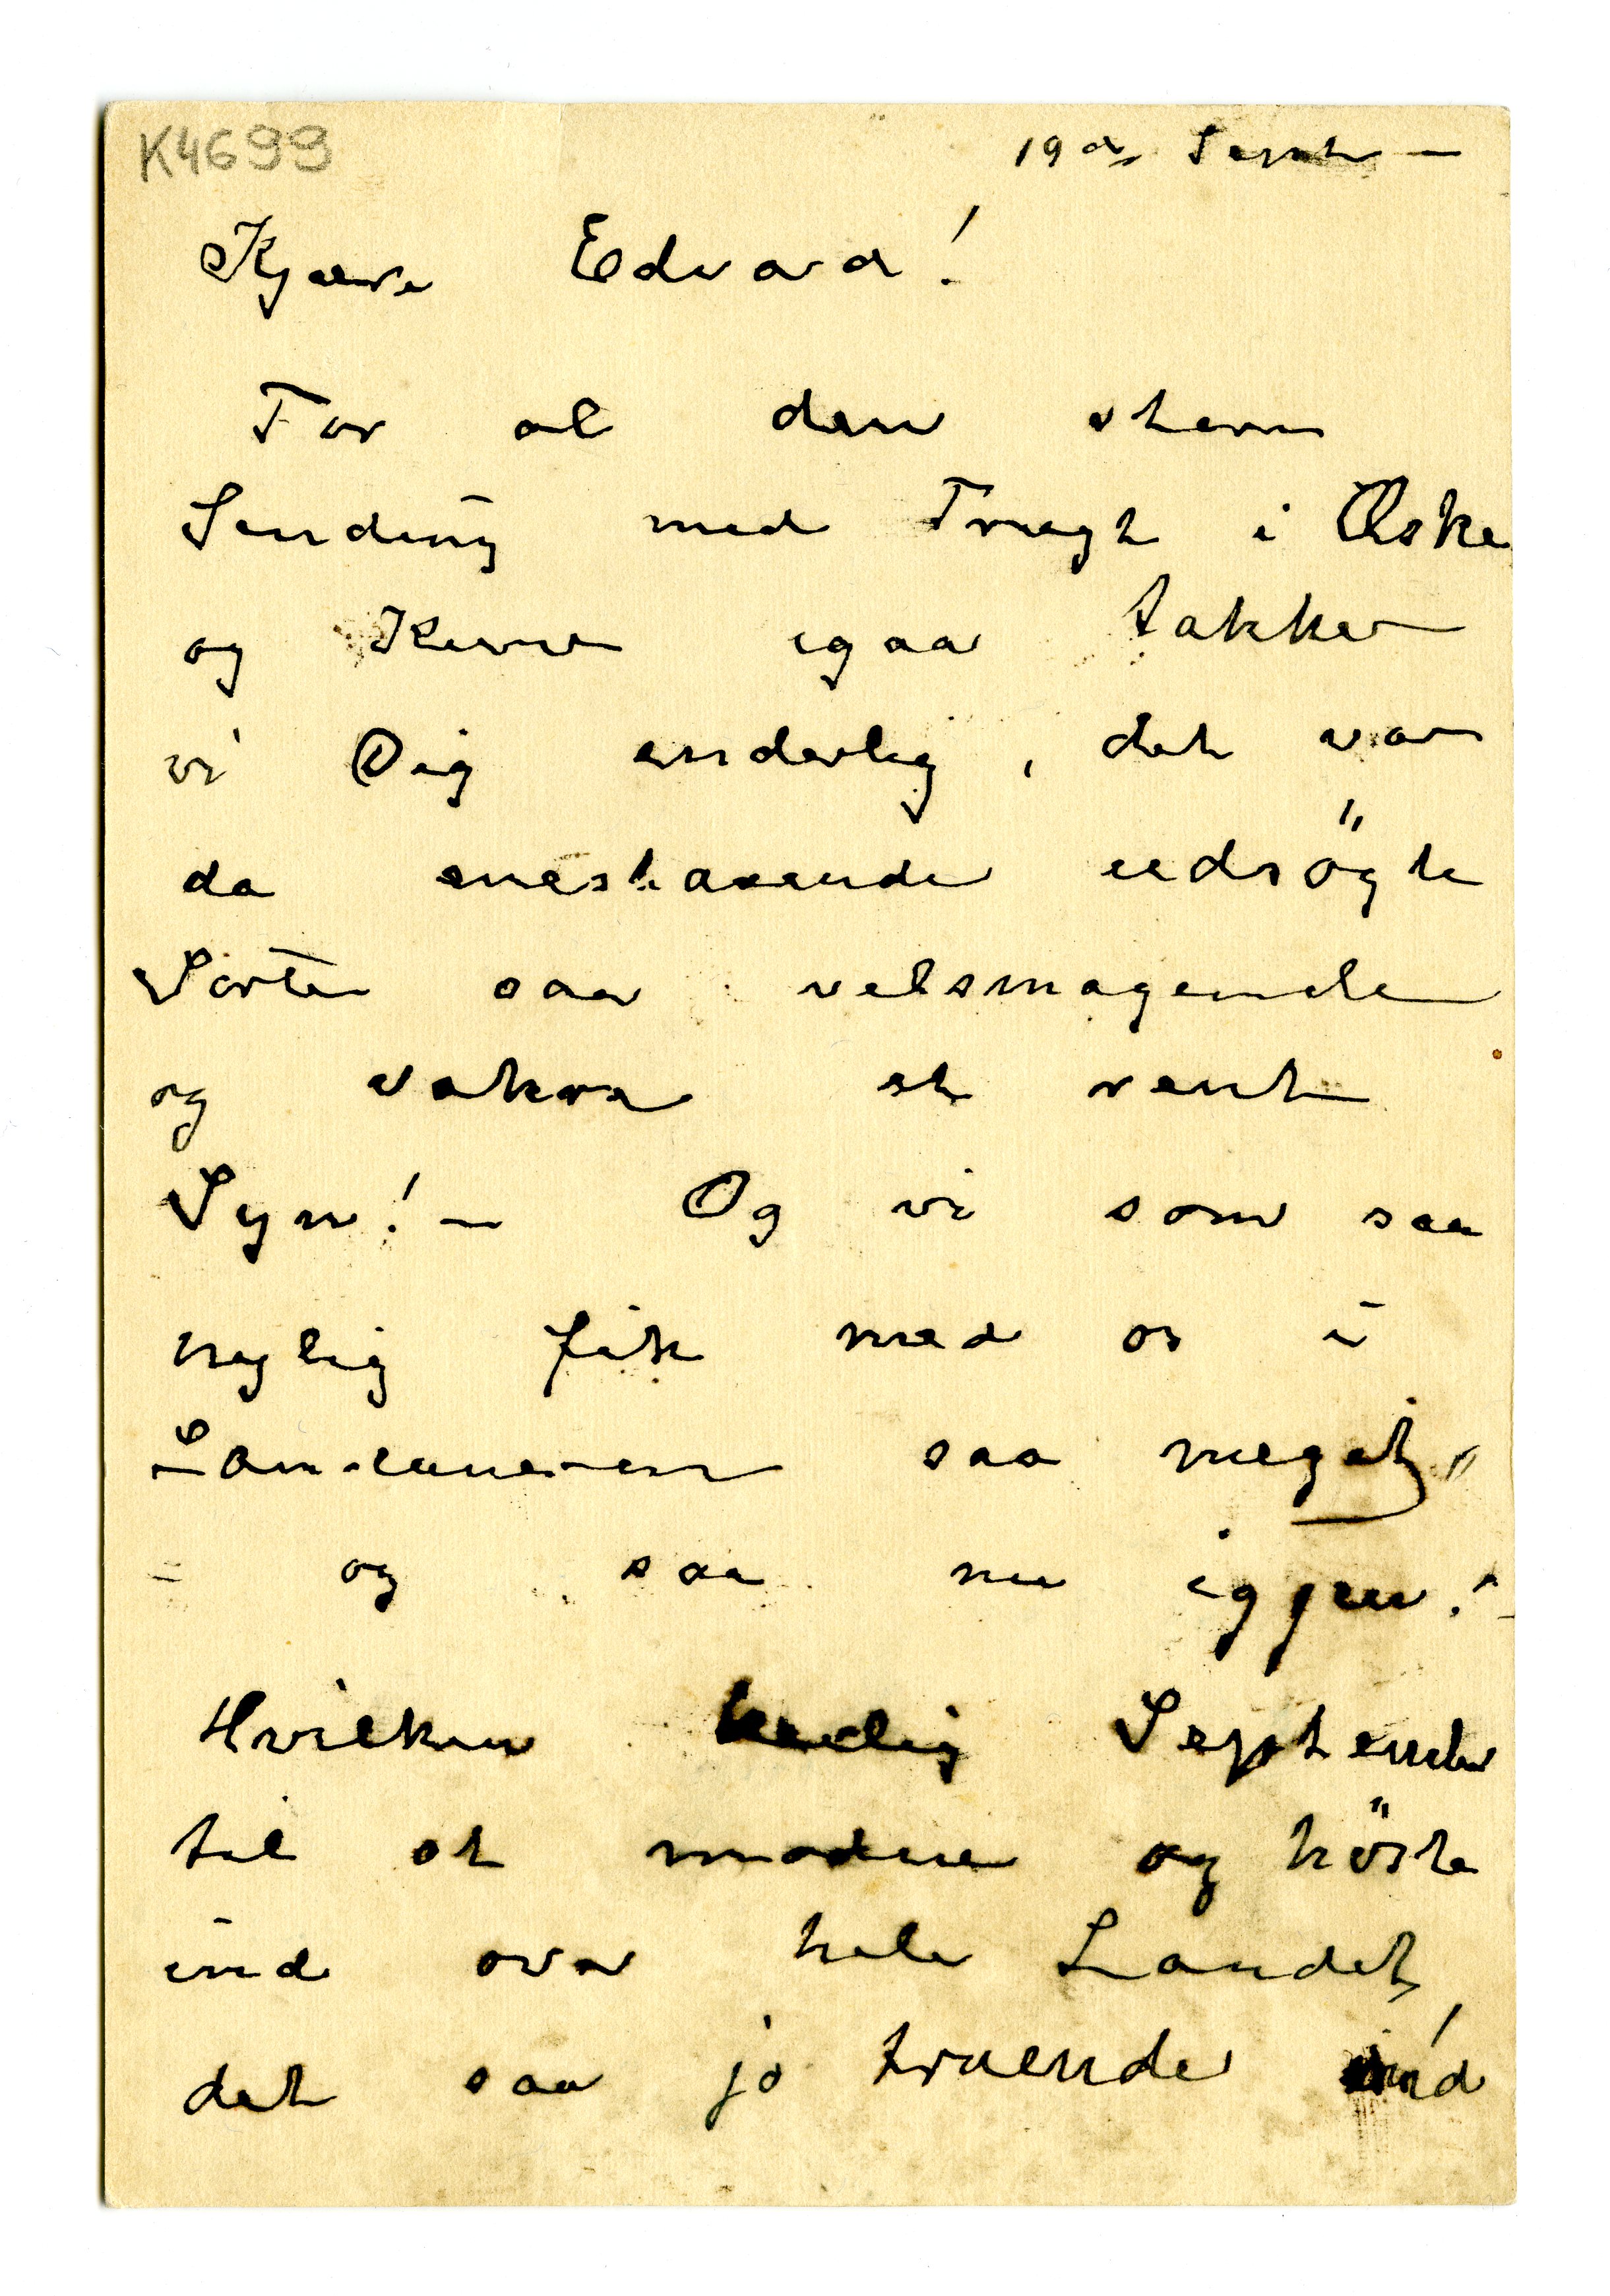 K4699
19de Sept –
Kjære Edvard!
For al den store
Sending med Frugt i Æske
og Kurv igaar takker
vi Dig inderlig, det var
da mestavende udsögte
Sorter saa velsmagende
og vakre et rent
Syn! – Og vi som saa
nylig fik med os i
saa meget,
– og saa nu igjen! –
Hvilken deilig September
til at modne og höste
ind over hele Landet,
det saa jo truende ud